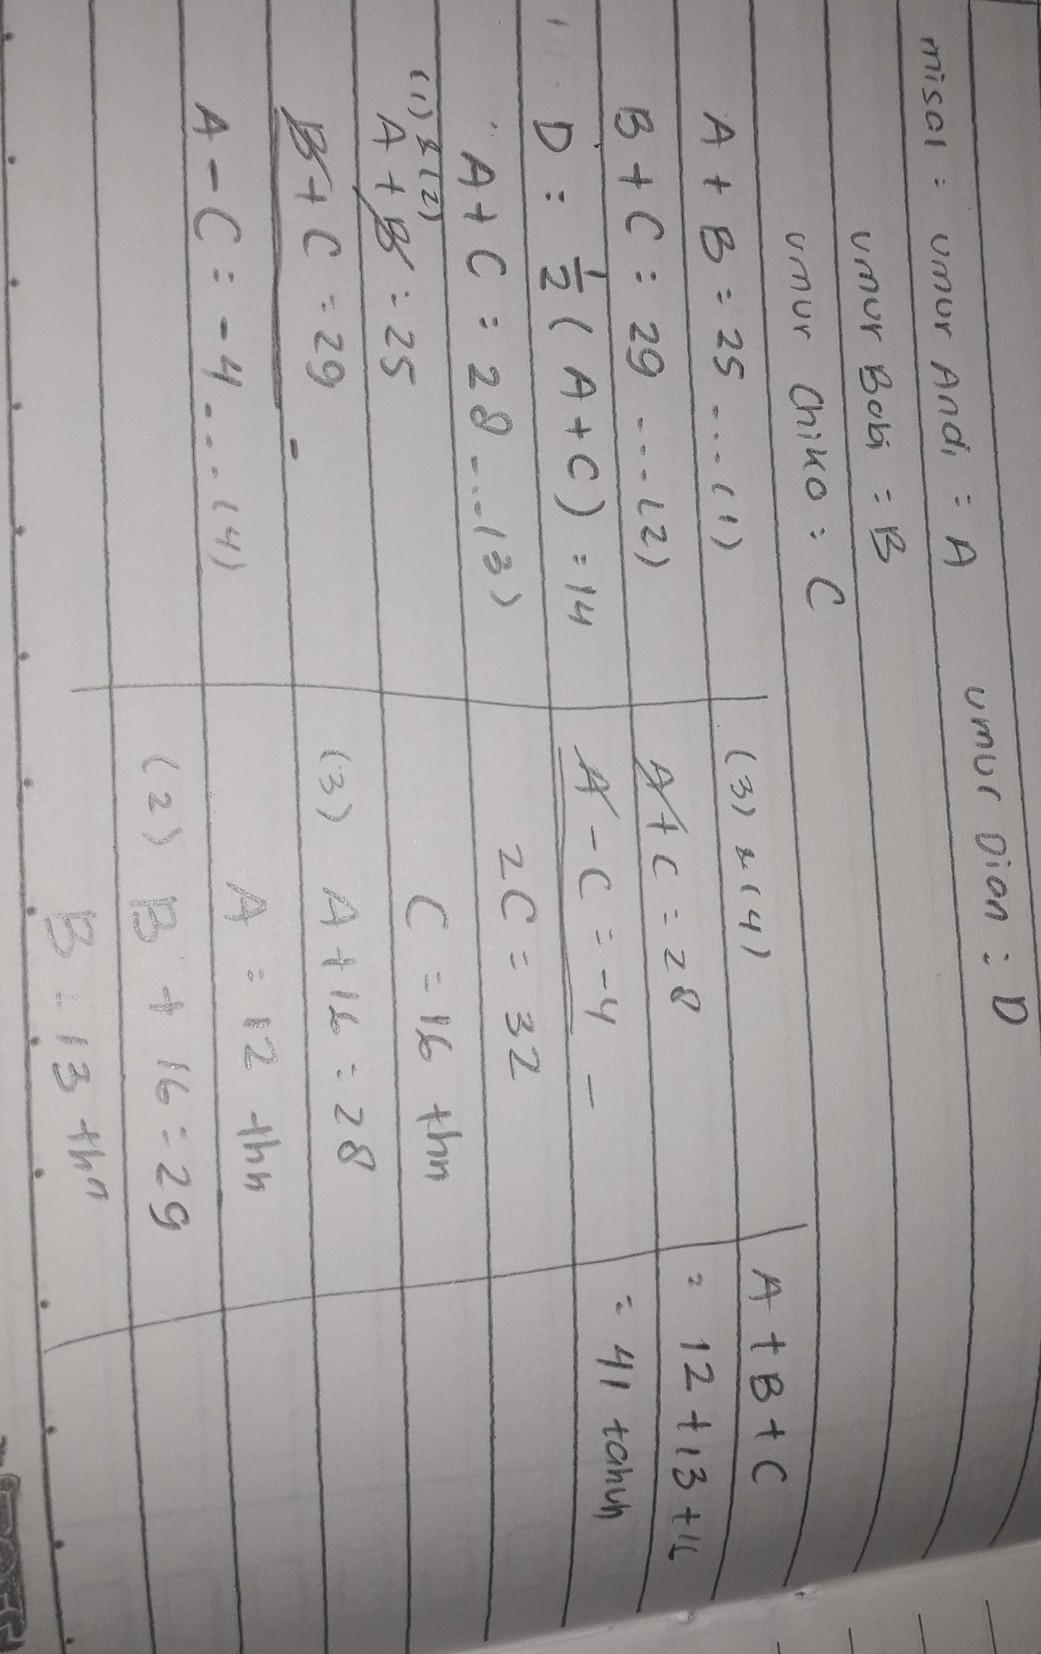 misal : umur Andi = A umur Dian : D
umur Bobi = B
umur Chiko : C
A + B = 25 ... (1)
B + C = 29 .... (2)
D = 1/2 (A + C) = 14
A + C = 28 ... (3)
(1) & (2)
A + B = 25
B + C = 29 -
A - C = -4 ... (4)
(3) & (4)
A + C = 28
A - C = -4 -
2C = 32
C = 16 thn
(3) A + 16 = 28
A = 12 thn
(2) B + 16 = 29
B = 13 thn
A + B + C
= 12 + 13 + 16
= 41 tahun